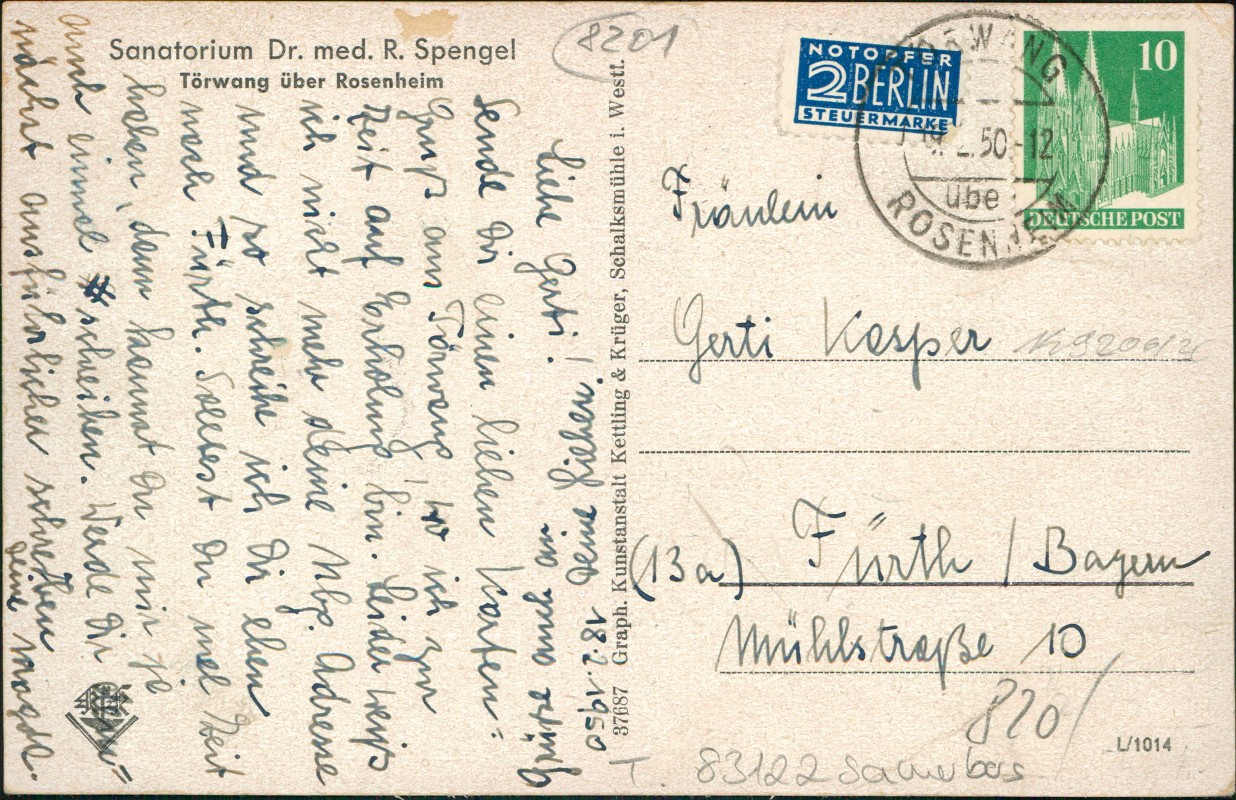 Sanatorium Dr. med. R. Spengel
Törwang über Rosenheim
18.2.1950
Liebe Gerti!
Sende Dir einen lieben Karten=
Gruß aus Törwang, wo ich zur
Zeit auf Erholung bin. Leider weiß
ich nicht mehr deine Nbg. Adresse
und so schreibe ich Dir eben
nach Fürth. Solltest Du mal Zeit
haben, dann kannst Du mir ja
auch einmal schreiben. Werde Dir
nächst ausführlicher schreiben
Grüße und
deine Lieben!
Deine
37687 Graph. Kunstanstalt Kettling & Krüger, Schalksmühle i. Westf.
8201
NOTOPFER
2 BERLIN
STEUERMARKE
10
DEUTSCHE POST
2.50-12
übe
ROSENHEIM
Fräulein
Gerti Kasper
(13a) Fürth / Bayern
Mühlstraße 10
820
L/1014
T. 83122 Samerberg